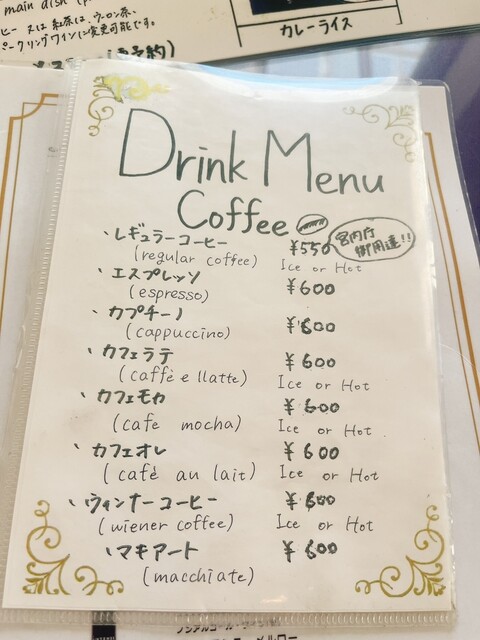 main dish
カレーライス
ークリングワインに変更可能です。
Drink Menu
Coffee
・レギュラーコーヒー ¥550 宮内庁御用達!!
(regular coffee) Ice or Hot
・エスプレッソ ¥600
(espresso)
・カプチーノ ¥600
(cappuccino)
・カフェラテ ¥600
(caffè e llatte) Ice or Hot
・カフェモカ ¥600
(cafe mocha) Ice or Hot
・カフェオレ ¥600
(cafè au lait) Ice or Hot
・ウィンナーコーヒー ¥600
(wiener coffee) Ice or Hot
・マキアート ¥600
(macchiate)